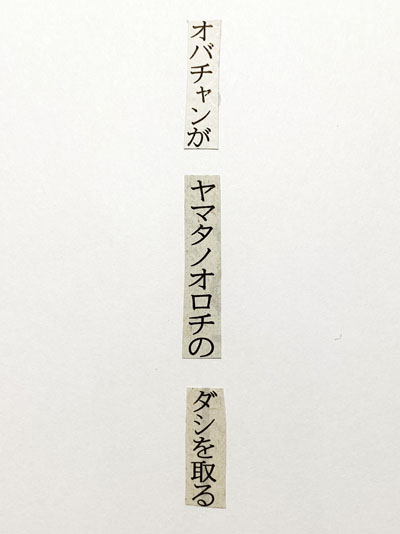 オバチャンが
ヤマタノオロチの
ダシを取る